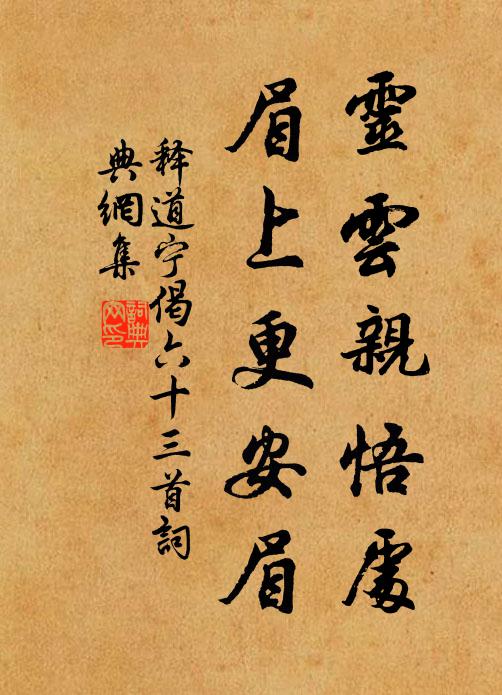 靈雲親悟處
眉上更安眉
释道宁偈六十三首詞
典網集
詞典
网印